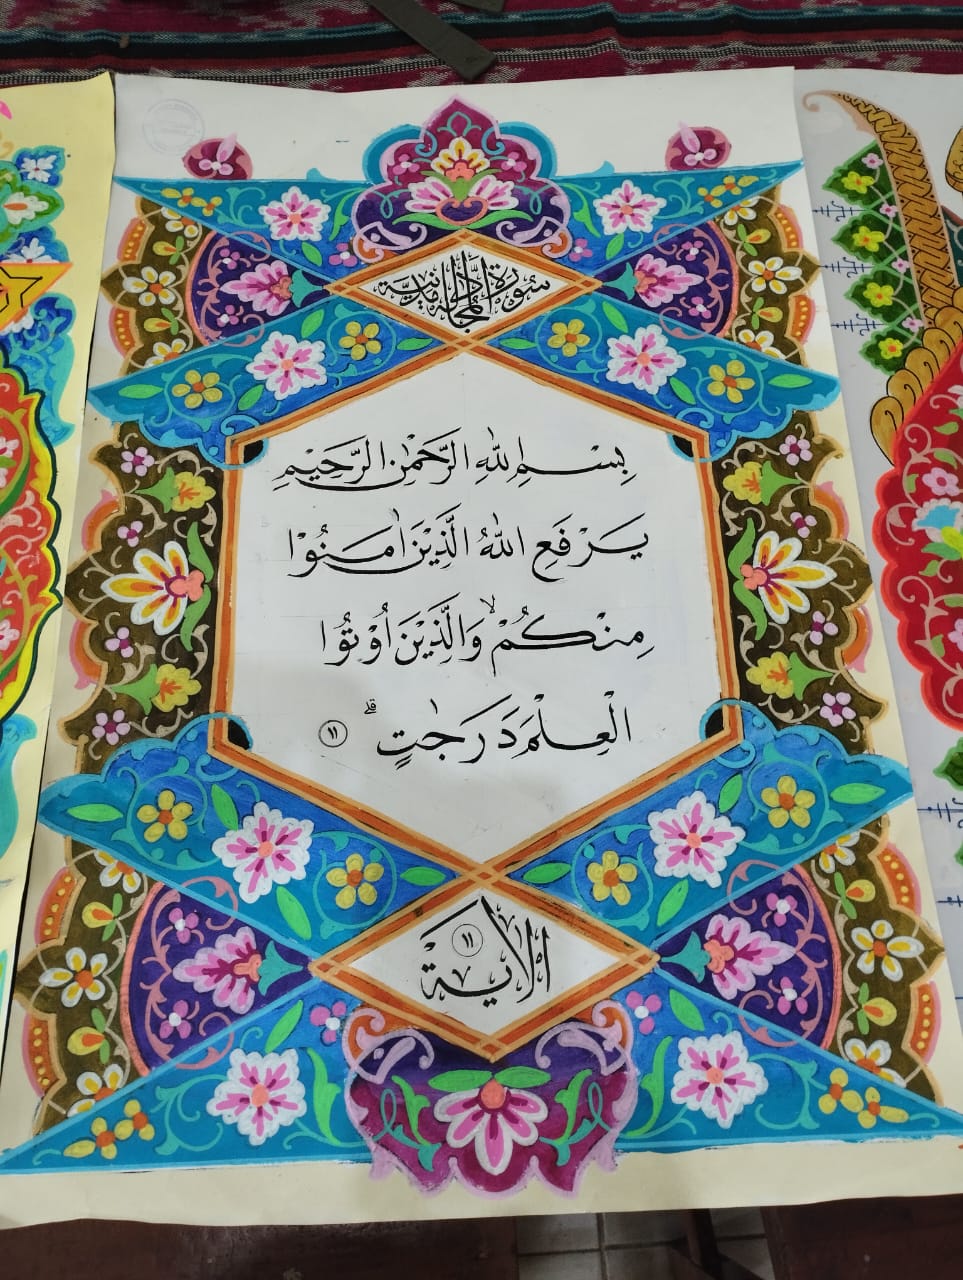 سُوْرَةُ الْمُجَادَلَةِ مَدَنِيَّة
بِسْمِ اللّٰهِ الرَّحْمٰنِ الرَّحِيْمِ
يَرْفَعِ اللّٰهُ الَّذِيْنَ اٰمَنُوْا
مِنْكُمْۙ وَالَّذِيْنَ اُوْتُوا
الْعِلْمَ دَرَجٰتٍۗ ١١
الاٰية ١١